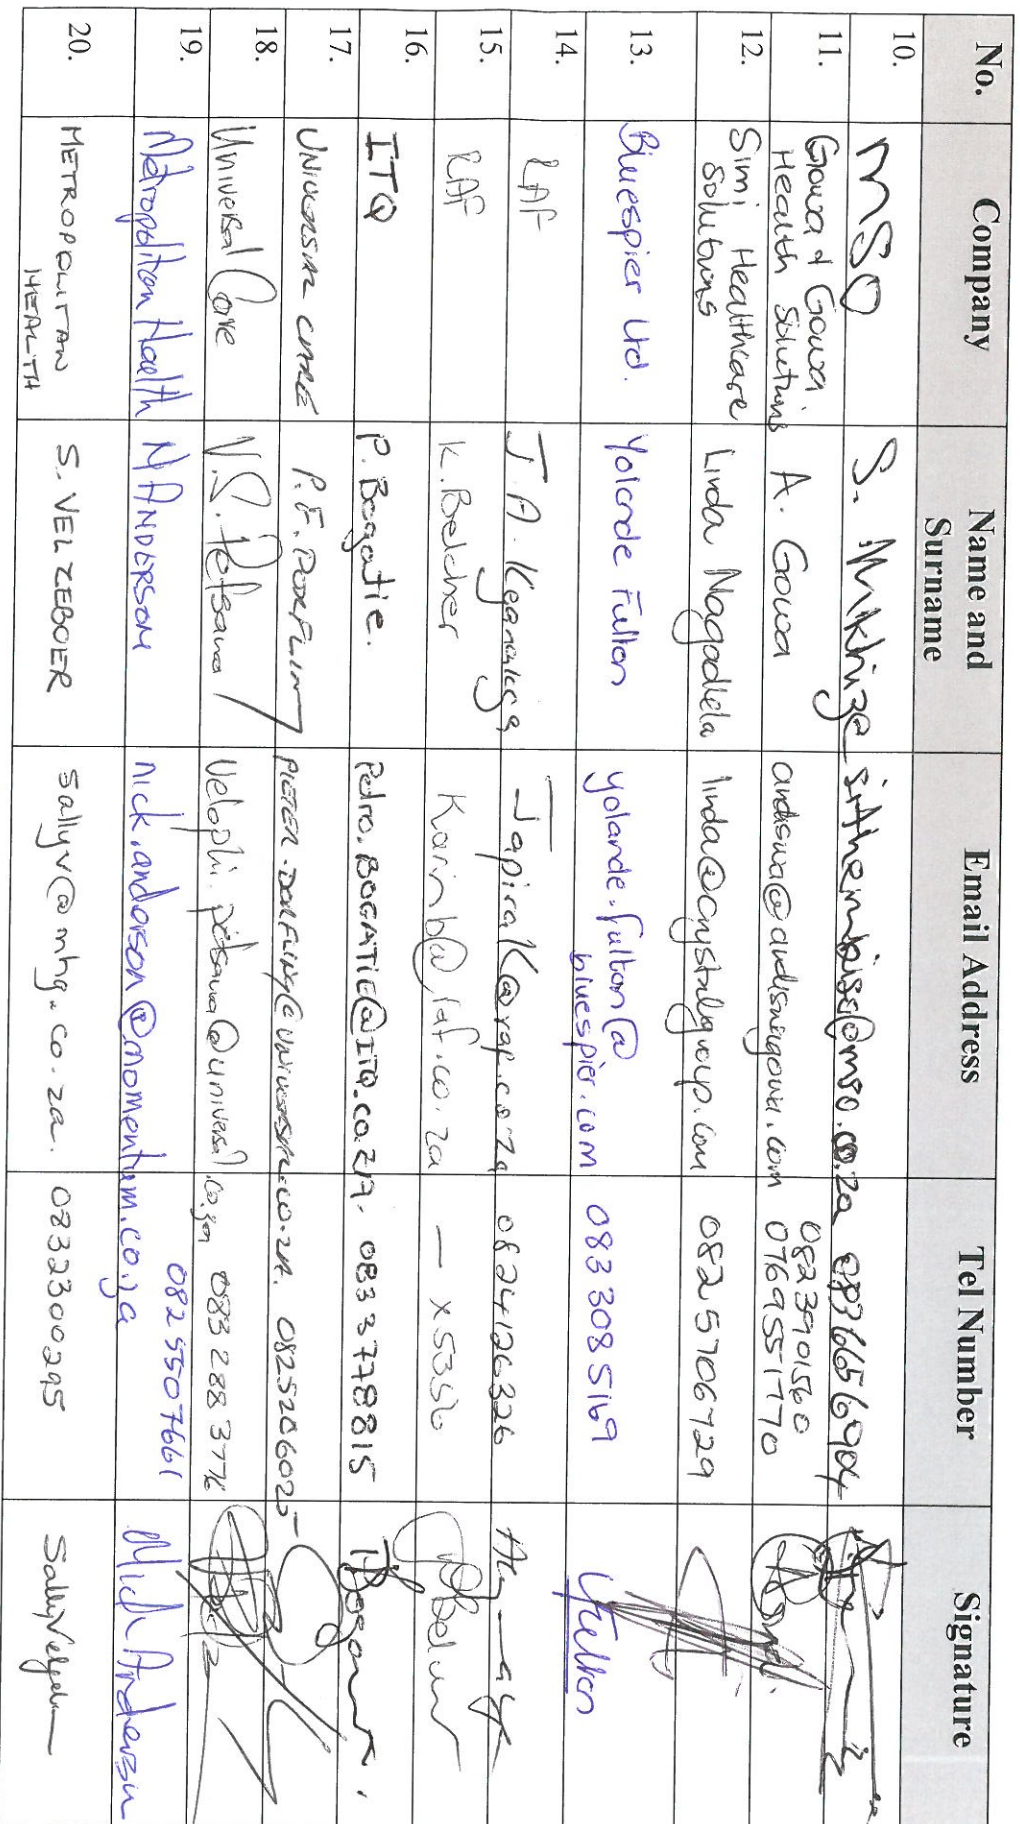 No. Company Name and Surname Email Address Tel Number Signature
10. MSO S. Mkhize sithembiso@mso.co.za 0836656904
11. Gowa & Gowa Health Solutions A. Gowa 0823901560 0769551770
12. Simi Healthcare Solutions Linda Nagadlela linda@crystallgroup.com 0825706729
13. Bluespier Ltd. Yolande Fulton yolande.fulton@bluespier.com 0833085169 YFulton
14. RAF J.A. Japiralk@raf.co.za 0824126326
15. RAF K. Belcher Karinb@raf.co.za — x5356
16. ITQ P. Bogatie. Pedro.BOGATIE@ITQ.co.ZA. 0833778815
17. UNIVERSAL CARE P.F. DORFLING PIETER.DORFLING@UNIVERSAL.CO.ZA. 0825206025
18. Universal Care V.S. Petsana 083 288 3776
19. Metropolitan Health N ANDERSON nick.anderson@momentum.co.za 082 5507661 Nick Anderson
20. METROPOLITAN HEALTH S. VELZEBOER sallyv@mhg.co.za. 0832300295